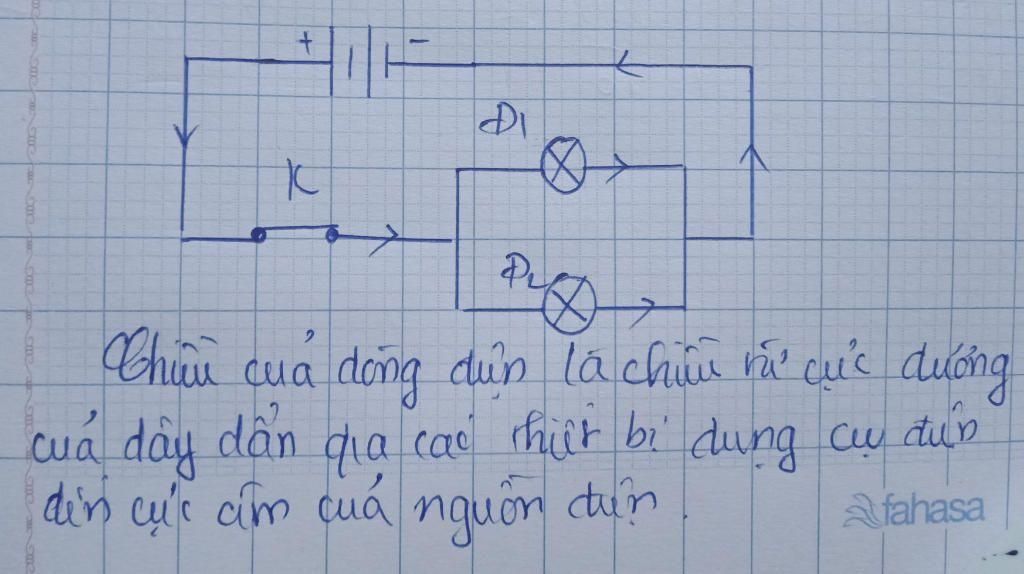 + -
Đ1
K
Đ2
Chiều của dòng điện là chiều từ cực dương
của dây dẫn qua các thiết bị dụng cụ điện
đến cực âm của nguồn điện.
fahasa